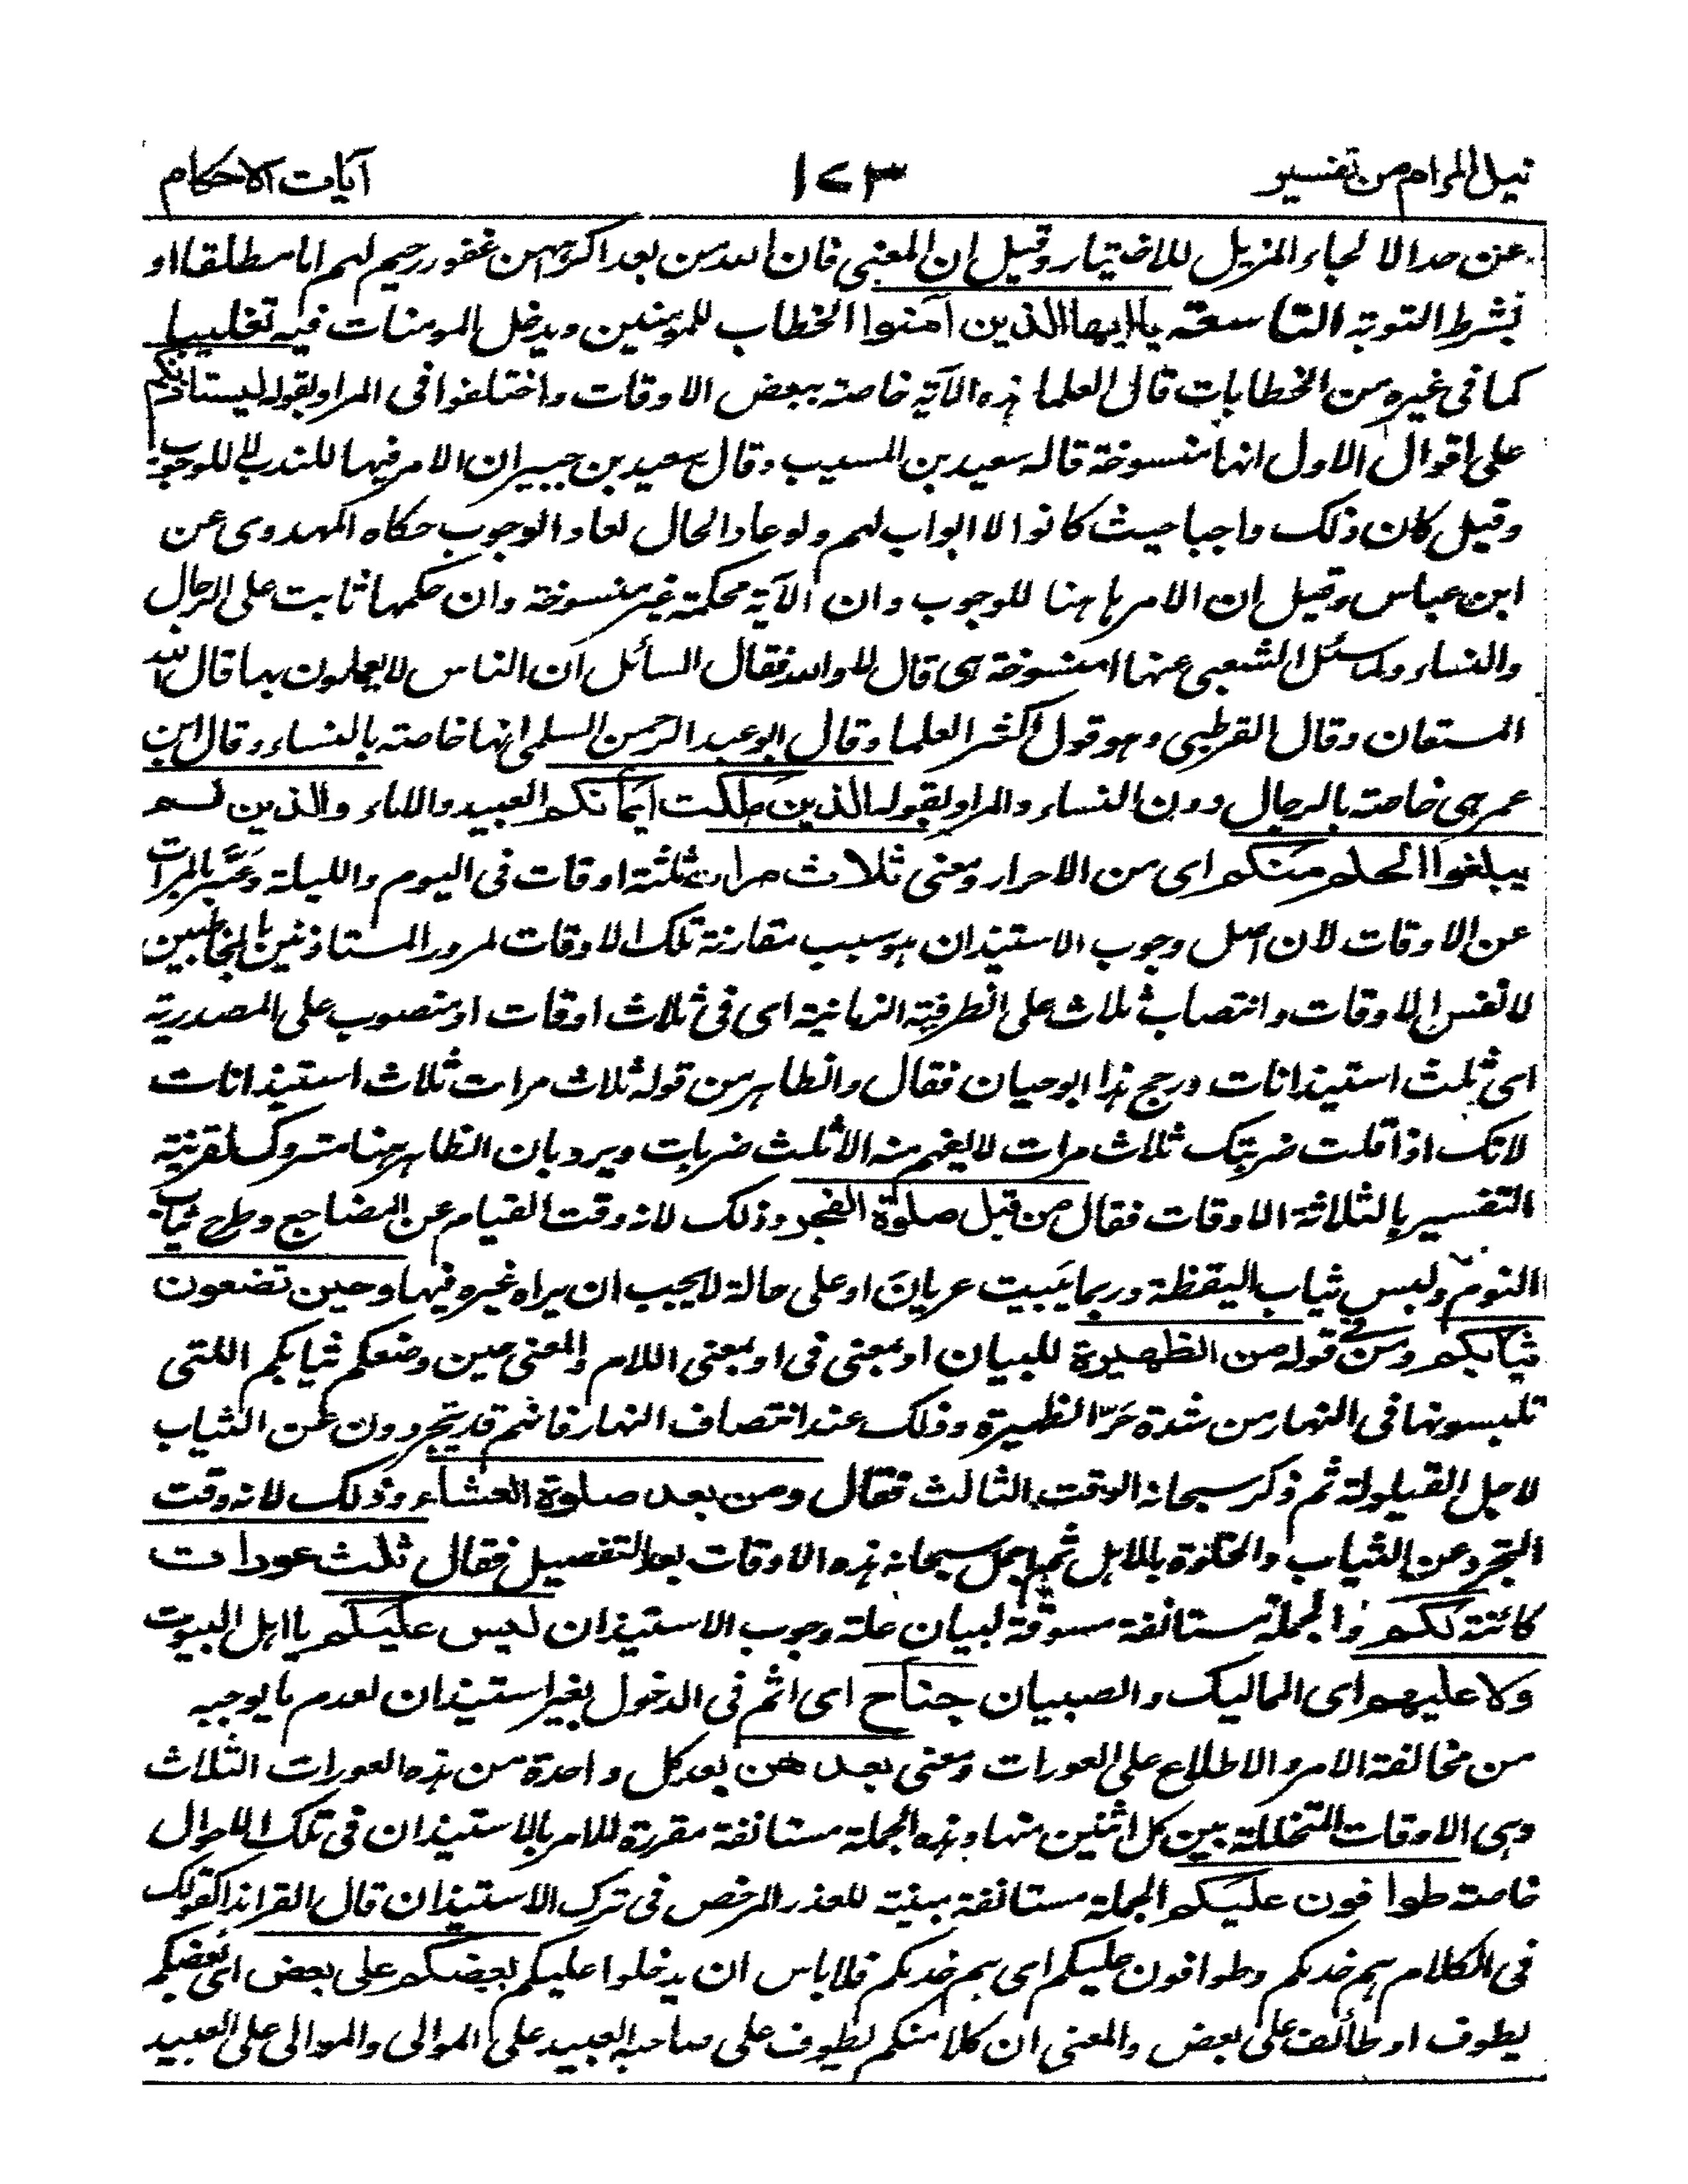 نيل المرام من تفسير ١٧٣ آيات الاحكام
عن حد الالجاء المزيل للاختيار وقيل ان المعنى فان الله من بعد اكراههن غفور رحيم لهم اما مطلقا او
بشرط التوبة التاسعة ياايها الذين آمنوا الخطاب للمومنين ويدخل المومنات فيه تغليبا
كما فى غيره من الخطابات قال العلما هذه الآية خاصة ببعض الاوقات واختلفوا فى المراد بقوله ليستاذنكم
على اقوال الاول انها منسوخة قاله سعيد بن المسيب وقال سعيد بن جبير ان الامر فيها للندب لا للوجوب
وقيل كان ذلك واجبا حيث كانوا لا ابواب لهم ولو عاد الحال لعاد الوجوب حكاه المهدوى عن
ابن عباس وقيل ان الامر هاهنا للوجوب وان الآية محكمة غير منسوخة وان حكمها ثابت على الرجال
والنساء ولما سئل الشعبى عنها امنسوخة هى قال لا والله فقال السائل ان الناس لا يعملون بها قال الله
المستعان وقال القرطبى وهو قول اكثر العلما وقال ابو عبد الرحمن السلمى انها خاصة بالنساء وقال ابن
عمر هى خاصة بالرجال دون النساء والمراد بقوله الذين ملكت أيمانكم العبيد والاماء والذين لم
يبلغوا الحلم منكم اى من الاحرار ومعنى ثلاث مرات ثلثة اوقات فى اليوم والليلة وعبر بالمرات
عن الاوقات لان اصل وجوب الاستيذان هو سبب مقارنة تلك الاوقات لمرور المستاذنين بالمخاطبين
لا نفس الاوقات وانتصاب ثلاث على الظرفية الزمانية اى فى ثلاث اوقات او منصوب على المصدرية
اى ثلث استيذانات ورجح هذا ابو حيان فقال والظاهر من قوله ثلاث مرات ثلاث استيذانات
لانك اذا قلت ضربتك ثلاث مرات لا يفهم منه الا ثلث ضربات ويرد بان الظاهر هنا متروك لقرينة
التفسير بالثلاثة الاوقات فقال من قبل صلوة الفجر وذلك لانه وقت القيام عن المضاجع وطرح ثياب
النوم ولبس ثياب اليقظة وربما يبيت عريانا او على حالة لا يحب ان يراه غيره فيها وحين تضعون
ثيابكم ومن فى قوله من الظهيرة للبيان او بمعنى فى او بمعنى اللام والمعنى حين وضعكم ثيابكم اللتى
تلبسونها فى النهار من شدة حر الظهيرة وذلك عند انتصاف النهار فانهم قد يتجردون عن الثياب
لاجل القيلولة ثم ذكر سبحانه الوقت الثالث فقال ومن بعد صلوة العشاء وذلك لانه وقت
التجرد عن الثياب والخلوة بالاهل ثم اجمل سبحانه هذه الاوقات بعد التفصيل فقال ثلث عورات
كائنة لكم والجملة مستانفة مسوقة لبيان علة وجوب الاستيذان ليس عليكم يا اهل البيوت
ولا عليهم اى المماليك والصبيان جناح اى اثم فى الدخول بغير استيذان لعدم ما يوجبه
من مخالفة الامر والاطلاع على العورات ومعنى بعدهن بعد كل واحدة من هذه العورات الثلاث
وهى الاوقات المتخللة بين كل اثنين منها وهذه الجملة مستانفة مقررة للامر بالاستيذان فى تلك الاحوال
خاصة طوافون عليكم الجملة مستانفة مبينة للعذر المرخص فى ترك الاستيذان قال الفراء هذا كقولك
فى الكلام هم خدمكم وطوافون عليكم اى هم خدمكم فلا باس ان يدخلوا عليكم بعضكم على بعض اى بعضكم
يطوف او طائف على بعض والمعنى ان كلا منكم يطوف على صاحبه العبيد على الموالى والموالى على العبيد